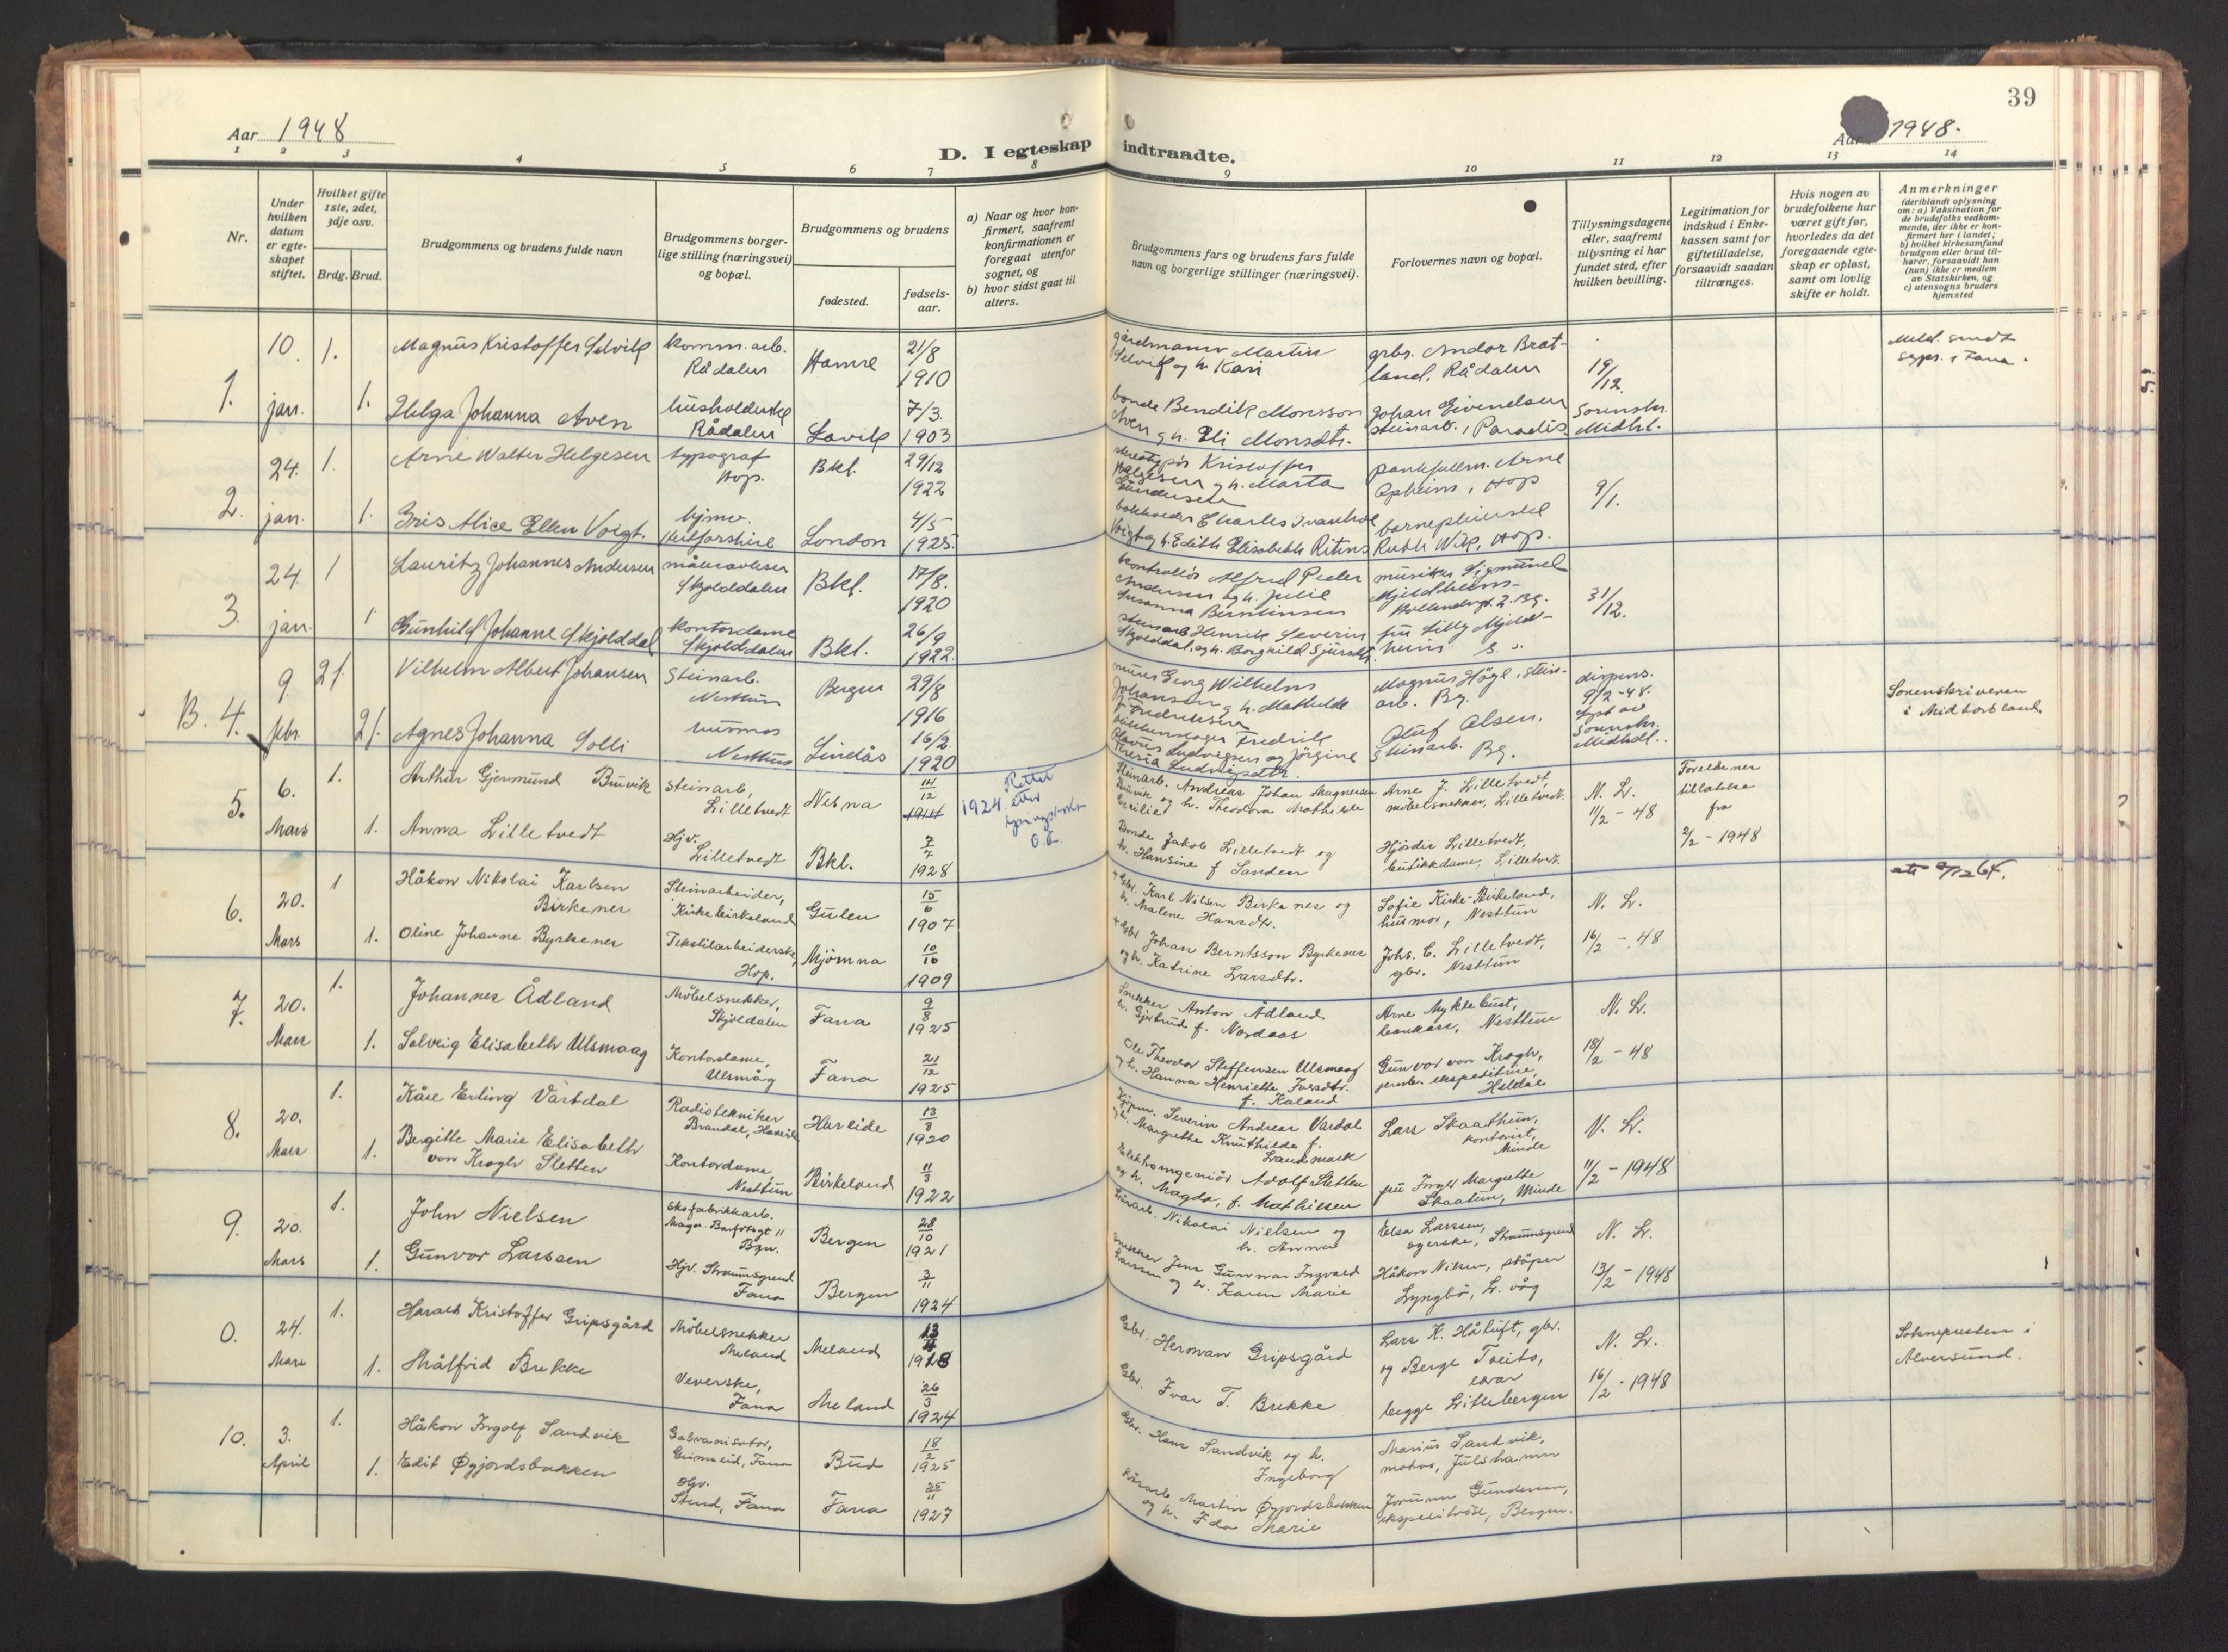 Aar 1948
D. I egteskap
1 2 3 4 5 6 7 8
Nr.
Under hvilken datum er egteskapet stiftet.
Hvilket gifte 1ste, 2det, 3dje osv.
Brdg. Brud.
Brudgommens og brudens fulde navn
Brudgommens borgerlige stilling (næringsvei) og bopæl.
Brudgommens og brudens
fødested.
fødselsaar.
a) Naar og hvor konfirmert, saafremt konfirmationen er foregaat utenfor sognet, og
b) hvor sidst gaat til alters.
1. 10. jan. 1. Magnus Kristoffer Selvik komm.arb. Rådalen Hamre 21/8 1910
1. Helga Johanna Aven Rådalen Lavik 7/3 1903
2. 24. jan. 1. Arne Walter Helgesen typograf Hop. Bkl. 29/12 1922
1. Alice Ellen Voigt. London 4/5 1925.
3. 24. jan. 1 Lauritz Johannes Andersen måleravleser Skjolddalen Bkl. 17/8. 1920
1 Gunhild Johanne Skjolddal kontordame Skjolddalen Bkl. 26/9 1922.
B. 4. 9. febr. 2/. Vilhelm Albert Johansen Steinarb. Nesttun Bergen 29/8 1916
2/. Agnes Johanna Solli husmor Nesttun Lindås 16/2. 1920
5. 6. Mars 1. Arthur Gjermund Bruvik Steinarb, Lilletvedt Nesna 14/12 1914 Rettet 1924 etter O.L.
1. Anna Lilletvedt Hjv. Lilletvedt Bkl. 7/7 1928
6. 20. Mars 1 Håkon Nikolai Karlsen Birkenes Steinarbeider, Kirkebirkeland Gulen 15/6 1907
1. Oline Johanne Byrkenes Tekstilarbeiderske, Hop. Mjömna 10/10 1909
7. 20. Mars 1. Johannes Ådland Möbelsnekker, Skjoldalen Fana 9/8 1925
1. Solveig Elisabeth Ulsmaag Kontordame, Ulsmåg Fana 21/12 1925
8. 20. Mars 1. Kåre Erling Vartdal Radiotekniker Brandal, Hareide Hareide 13/3 1920
1. Bergitte Marie Elisabeth von Krogh Sletten Kontordame, Nesttun Birkeland 11/3 1922
9. 20. Mars 1. John Nielsen Skofabrikkarb. Magn. Barfotsgt 11 Bgn. Bergen 28/10 1921
1. Gunvor Larssen Hjv. Straumsgrend Fana Bergen 3/11 1924
0. 24. Mars 1. Harald Kristoffer Gripsgård Möbelsnekker Meland Meland 13/4 1918
1. Målfrid Brekke Veverske, Fana Meland 26/3 1924
10. 3. April 1. Håkon Ingolf Sandvik Galvanisator, Grimseid, Fana Bud 18/2 1925
1. Edit Øygjordsbakken Hjv. Stend, Fana Fana 25/11 1927
39
indtraadte.
Aar 1948.
9 10 11 12 13 14
Brudgommens fars og brudens fars fulde navn og borgerlige stillinger (næringsvei).
Forlovernes navn og bopæl.
Tillysningsdagene eller, saafremt tillysning ei har fundet sted, efter hvilken bevilling.
Legitimation for indskud i Enkekassen samt for giftetilladelse, forsaavidt saadan tiltrænges.
Hvis nogen av brudefolkene har været gift før, hvorledes da det foregaaende egteskap er opløst, samt om lovlig skifte er holdt.
Anmerkninger (deriblandt oplysning om: a) Vaksination for de brudefolks vedkommende, der ikke er konfirmert her i landet; b) hvilket kirkesamfund brudgom eller brud tilhører, forsaavidt han (hun) ikke er medlem av Statskirken, og c) utensogns bruders hjemsted
gårdmann Martin Selvik og h. Kari grbr. Andor Bratland, Rådalen 19/12. Meld. sendt sogpr. i Fana.
bonde Bendik Monsson Aven g h. Eli Monsdtr. Johan Eivendsen steinarb., Paradis. Sorenskr. Midhl.
Kristoffer Helgesen g h. Marta Gundersen Arne Opheim, Hop 9/1.
bokholder Charles Voigt og h. Edith Elisabeth Ruth Wiik, Hop.
kontrollör Alfred Peder Andersen og h. Julie Susanna Berntinsen musiker Sigmund Mjeldheim 31/12.
steinarb Henrik Severin Skjolddal, og h. Borghild Sjursdtr. fru Lilly Mjeldheim
murer Georg Wilhelm Johansen g h. Mathilde f Fredriksen Magnus Högl, steinarb. Bg. dispens. 9/2-48. Lyst av Sorenskr. Midhdl. Sorenskriveren i Midhordland.
Fredrik Ludvigsen og Jörgine Olaf Olsen. Steinarb. Bg.
Steinarb. Andreas Johan Magnesen Bruvik og h. Theodora Mathilde Cecilie Arne J. Lilletvedt, möbelsnekker, Lilletvedt. N. L. 11/2 - 48 Foreldrenes tillatelse fra 2/2 - 1948
Bonde Jakob Lilletvedt og h. Hansine f Sanden Hjördis Lilletvedt, butikkdame, Lilletvedt.
+ Gbr. Karl Nilsen Birkenes og h. Malene Hansdtr. Sofie Kirke-Birkeland, husmor, Nesttun N. L. 16/2 - 48
+ Gbr Johan Berntsson Byrkenes og h. Katrine Larsdtr. Johs. C. Lilletvedt, gbr. Nesttun
Snekker Anton Ådland h. Gjertrud f. Nordaas Arne Myklebust, bankass, Nesttun N. L. 18/2 - 48
Ole Theodor Steffensen Ulsmaag og h. Hanna Henriette Iversdtr. f. Kaland Gunvor von Krogh, jernb. ekspeditrise, Heldal
Kjöpm. Severin Andreas Vardal og h. Margrethe Knuthilde f. Landmark Lars Skaathun, kontorist, Minde N. L. 11/2 - 1948
Elektroingeniör Adolf Sletten og h. Magda, f. Mathiesen fru Inger Margrethe Skaatun, Minde
Nikolai Nielsen og h. Anna Elsa Larssen, syerske, Straumsgrend N. L. 13/2 - 1948
snekker Jens Gunnar Ingvald Larssen og h. Karen Marie Håkon Nilsen, stöper Lyngbö, L. våg
Gbr. Herman Gripsgård Lars K. Håluft, gbr. og Berge Tveito, N. L. 16/2 - 1948 Soknepresten i Alversund.
Gbr. Ivar T. Brekke begge Litlebergen
Gbr. Hans Sandvik og h. Ingeborg Marius Sandvik, Julshamn
Martin Øygjordsbakken og h. Ida Marie Jorunn Gundersen, ekspeditrise, Bergen.